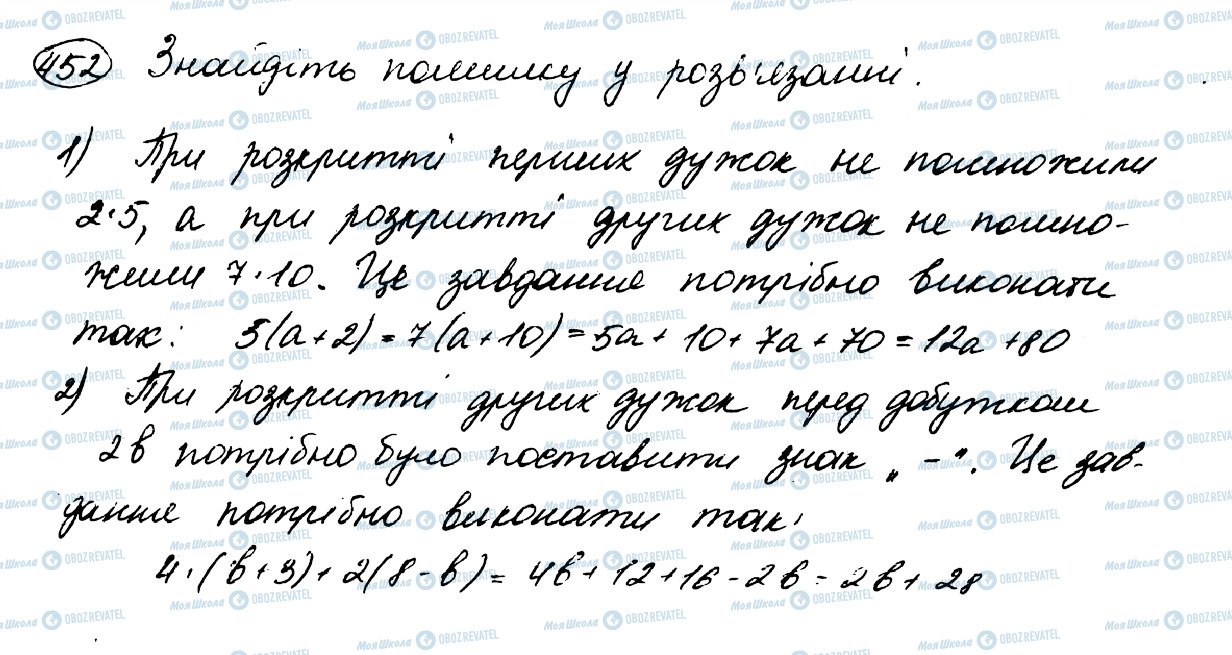 452 Знайдіть помилку у розв'язанні.
1) При розкритті перших дужок не помножили
2·5, а при розкритті других дужок не помно-
жили 7·10. Це завдання потрібно виконати
так: 5(a+2) = 7(a+10) = 5a + 10 + 7a + 70 = 12a + 80
2) При розкритті других дужок перед добутком
2в потрібно було поставити знак „-". Це зав-
дання потрібно виконати так:
4·(в+3)+2(8-в) = 4в+12+16-2в = 2в+28